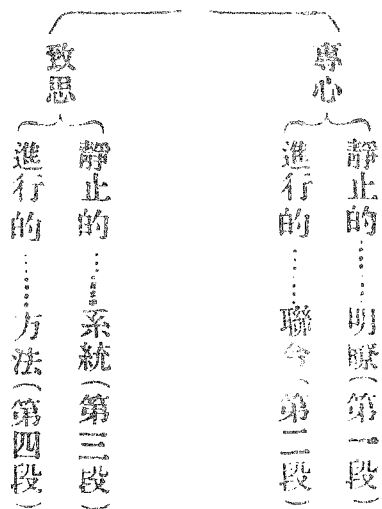 專心
靜止的……明瞭(第一段)
進行的……聯合(第二段)
致思
靜止的……系統(第三段)
進行的……方法(第四段)